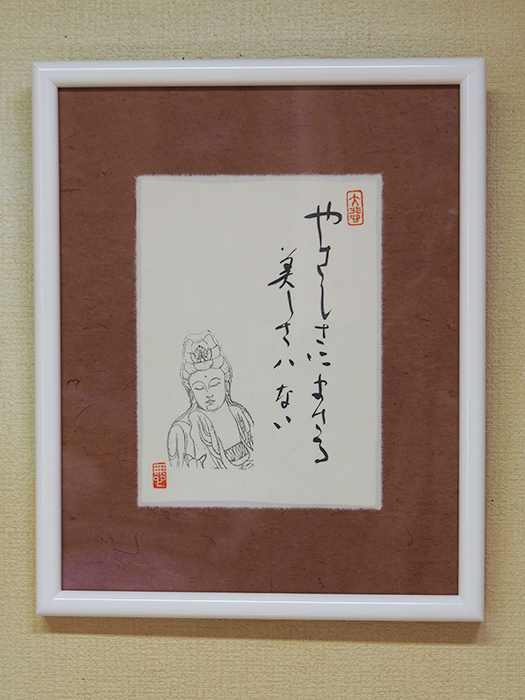 やさしさにまさる
美しさハない